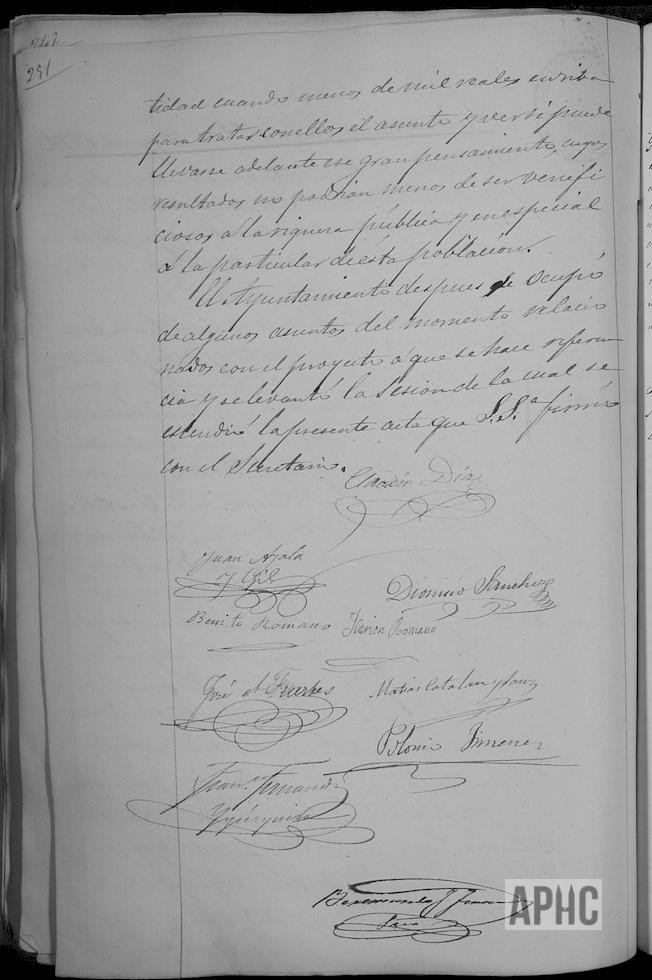 291
tidad cuando menos de mil reales en riba
para tratar con ellos el asunto y ver si puede
llevarse adelante ese gran pensamiento, cuyos
resultados no podrian menos de ser venefi
ciosos a la riquera pública y en especial
á la particular de ésta población.
El Ayuntamiento despues se ocupó
de algunos asuntos del momento relacio
nados con el proyecto á que se hace referen
cia y se levantó la Sesion de la cual se
estendió la presente acta que S.S.ª firmó
con el Secretario.
Díaz
Juan Ayala
y Gil
Dionisio Sanchez
Benito Romano Ilarion Romano
José A. Fuertes
Matias Catalan y Sanz
Polonio Jimenez
Fran.co Fernandez
Yzquierdo
Beremundo
APHC